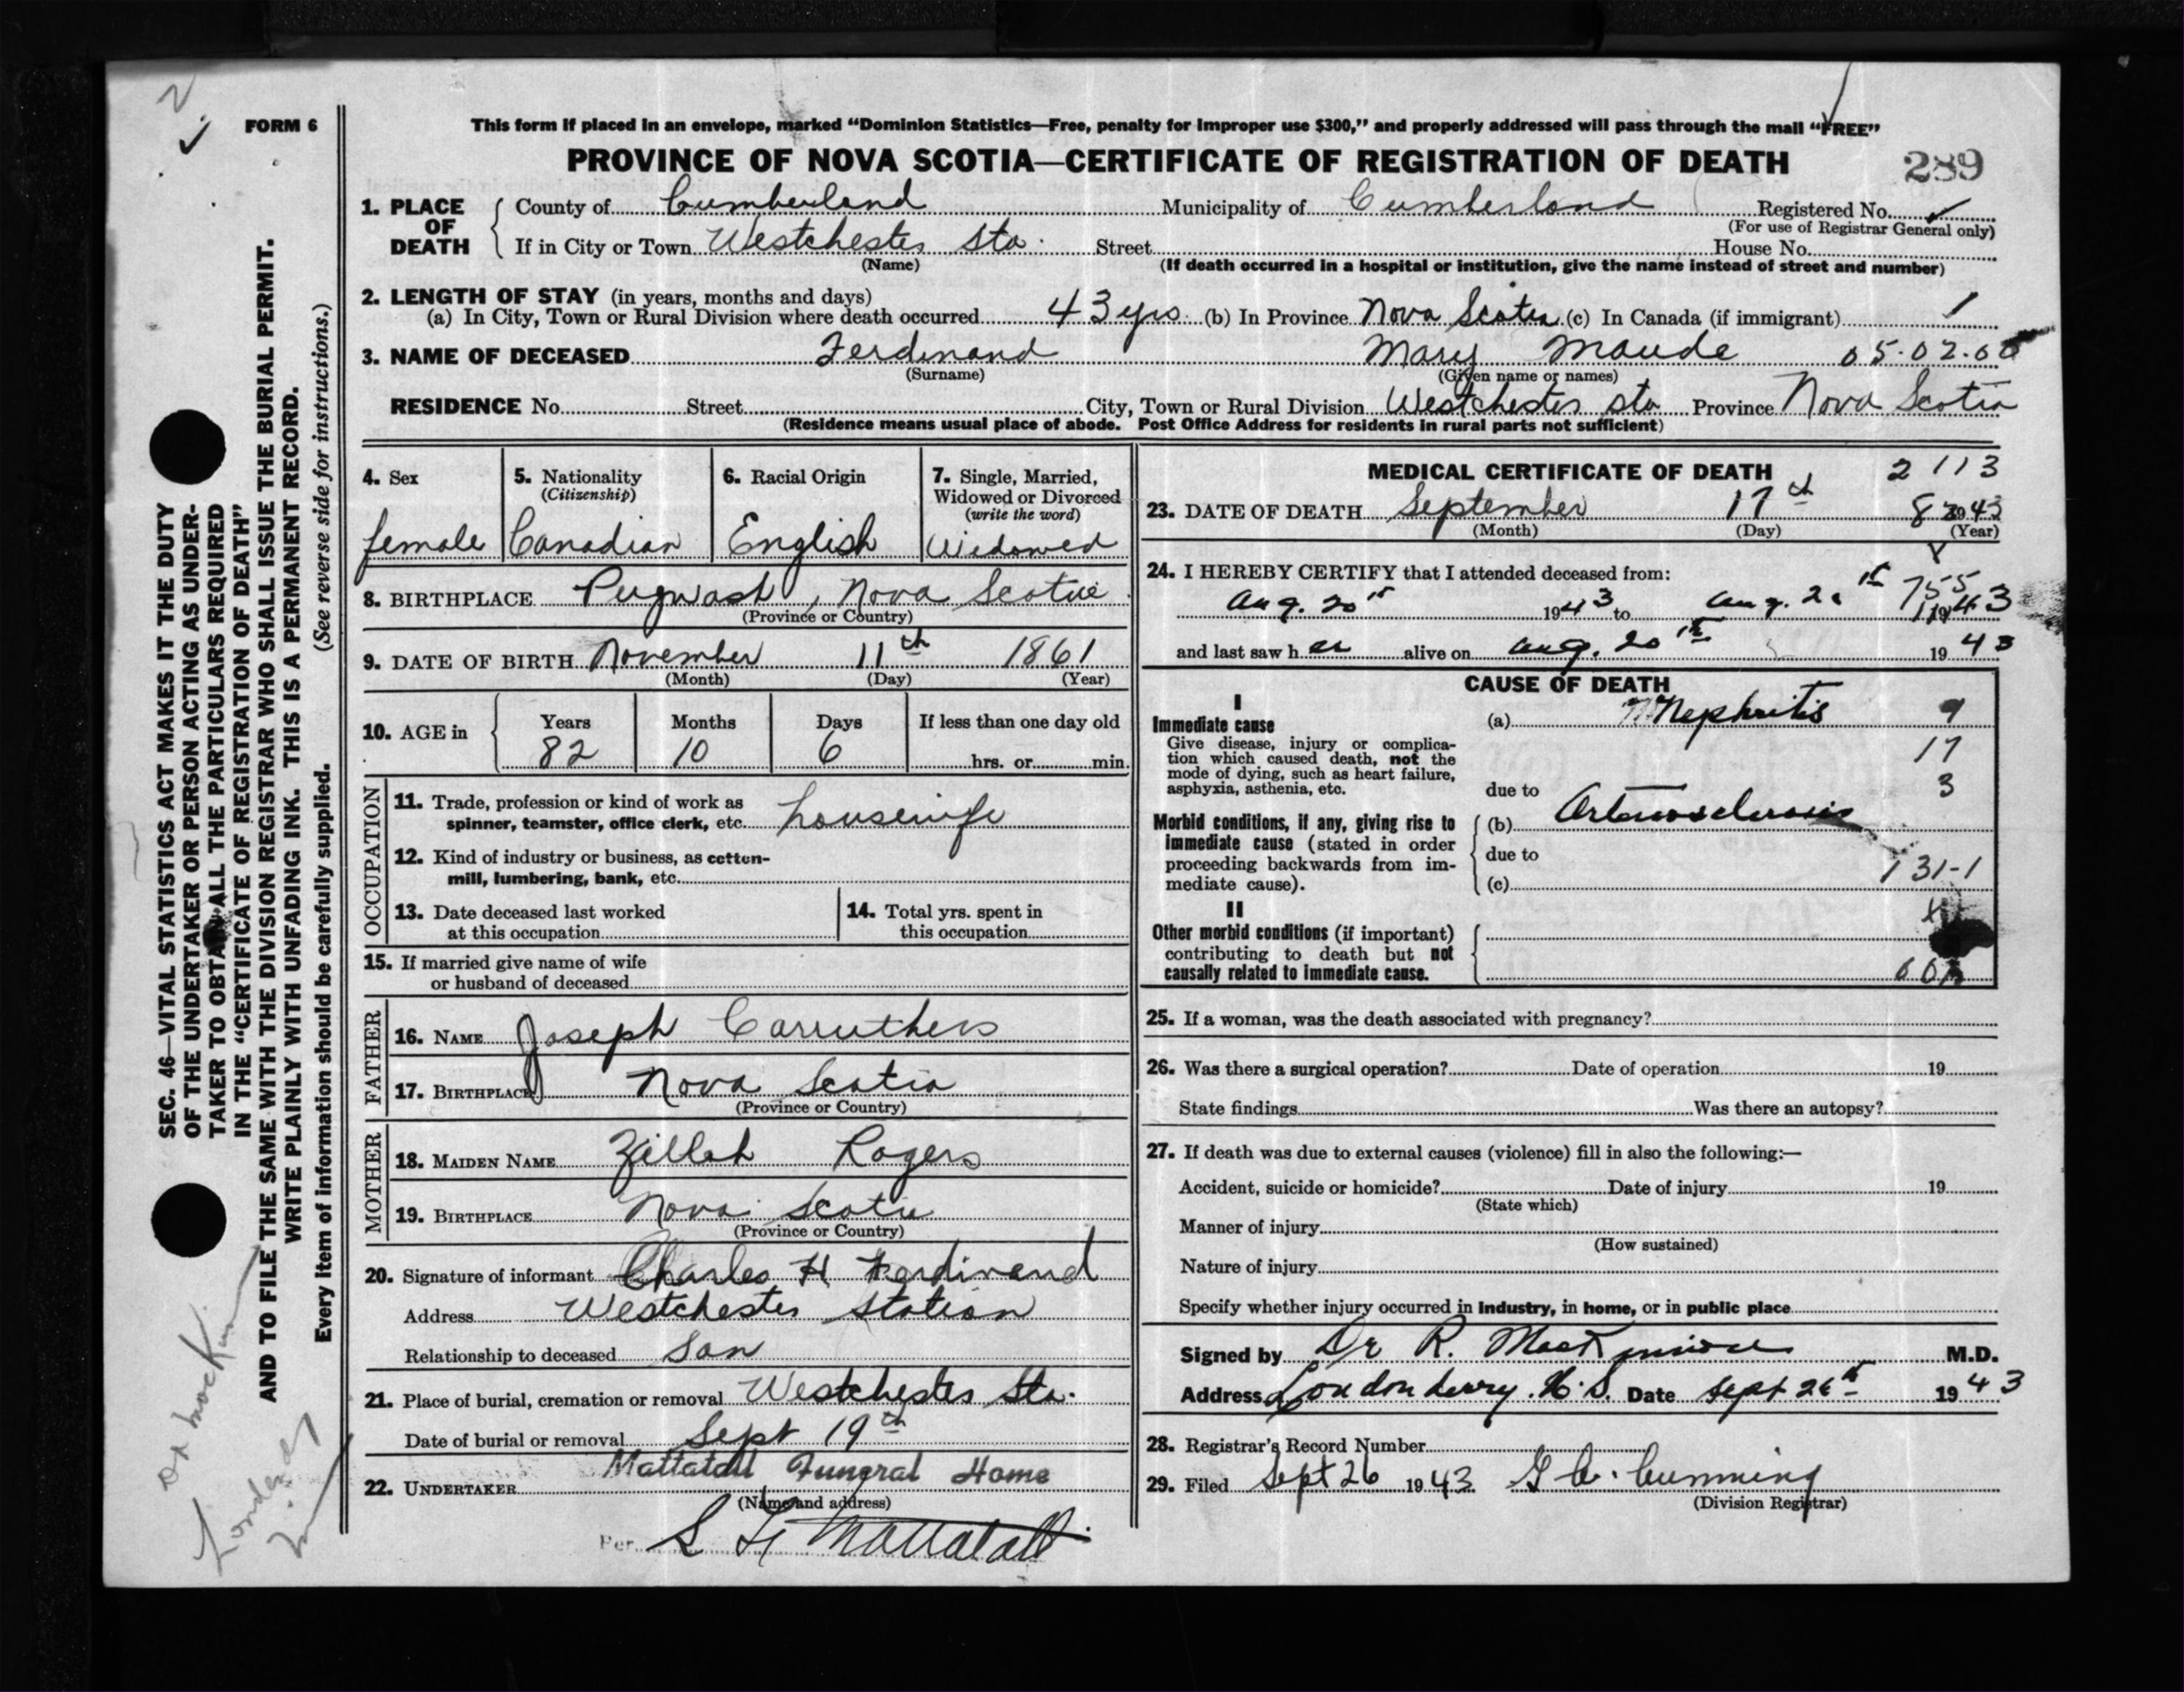 FORM 6
This form if placed in an envelope, marked “Dominion Statistics—Free, penalty for improper use $300,” and properly addressed will pass through the mail “FREE”
PROVINCE OF NOVA SCOTIA—CERTIFICATE OF REGISTRATION OF DEATH
289
1. PLACE OF DEATH
County of Cumberland Municipality of Cumberland Registered No.
(For use of Registrar General only)
If in City or Town Westchester Sta. Street House No.
(Name) (If death occurred in a hospital or institution, give the name instead of street and number)
2. LENGTH OF STAY (in years, months and days)
(a) In City, Town or Rural Division where death occurred 43 yrs. (b) In Province Nova Scotia (c) In Canada (if immigrant)
3. NAME OF DECEASED Ferdinand Mary Maude 05.02.60
(Surname) (Given name or names)
RESIDENCE No. Street City, Town or Rural Division Westchester Sta Province Nova Scotia
(Residence means usual place of abode. Post Office Address for residents in rural parts not sufficient)
4. Sex
female
5. Nationality
(Citizenship)
Canadian
6. Racial Origin
English
7. Single, Married,
Widowed or Divorced
(write the word)
Widowed
8. BIRTHPLACE Pugwash, Nova Scotia
(Province or Country)
9. DATE OF BIRTH November 11th 1861
(Month) (Day) (Year)
10. AGE in Years Months Days If less than one day old
82 10 6 hrs. or min.
OCCUPATION
11. Trade, profession or kind of work as
spinner, teamster, office clerk, etc. housewife
12. Kind of industry or business, as cotton-
mill, lumbering, bank, etc.
13. Date deceased last worked
at this occupation
14. Total yrs. spent in
this occupation
15. If married give name of wife
or husband of deceased
FATHER
16. NAME Joseph Carruthers
17. BIRTHPLACE Nova Scotia
(Province or Country)
MOTHER
18. MAIDEN NAME Zillah Rogers
19. BIRTHPLACE Nova Scotia
(Province or Country)
20. Signature of informant Charles H Ferdinand
Address Westchester Station
Relationship to deceased Son
21. Place of burial, cremation or removal Westchester Sta.
Date of burial or removal Sept 19th
22. UNDERTAKER Mattatall Funeral Home
(Name and address)
Per L H Mattatall
MEDICAL CERTIFICATE OF DEATH 2 113
23. DATE OF DEATH September 17th 1943
(Month) (Day) (Year)
24. I HEREBY CERTIFY that I attended deceased from:
Aug. 20th 1943 to Aug. 20th 1943
and last saw her alive on Aug. 20th 1943
CAUSE OF DEATH
I
Immediate cause
Give disease, injury or complica-
tion which caused death, not the
mode of dying, such as heart failure,
asphyxia, asthenia, etc.
(a) Nephritis 9
17
3
due to
Morbid conditions, if any, giving rise to
immediate cause (stated in order
proceeding backwards from im-
mediate cause).
(b) Arteriosclerosis
due to
(c) 131-1
II
Other morbid conditions (if important)
contributing to death but not
causally related to immediate cause.
25. If a woman, was the death associated with pregnancy?
26. Was there a surgical operation? Date of operation 19
State findings Was there an autopsy?
27. If death was due to external causes (violence) fill in also the following:—
Accident, suicide or homicide? Date of injury 19
(State which)
Manner of injury
(How sustained)
Nature of injury
Specify whether injury occurred in industry, in home, or in public place
Signed by Dr R. MacKinnon M.D.
Address Londonderry. N.S. Date Sept 26th 1943
28. Registrar's Record Number
29. Filed Sept 26 1943 Cumming
(Division Registrar)
SEC. 46—VITAL STATISTICS ACT MAKES IT THE DUTY
OF THE UNDERTAKER OR PERSON ACTING AS UNDER-
TAKER TO OBTAIN ALL THE PARTICULARS REQUIRED
IN THE “CERTIFICATE OF REGISTRATION OF DEATH”
AND TO FILE THE SAME WITH THE DIVISION REGISTRAR WHO SHALL ISSUE THE BURIAL PERMIT.
WRITE PLAINLY WITH UNFADING INK. THIS IS A PERMANENT RECORD.
Every item of information should be carefully supplied. (See reverse side for instructions.)